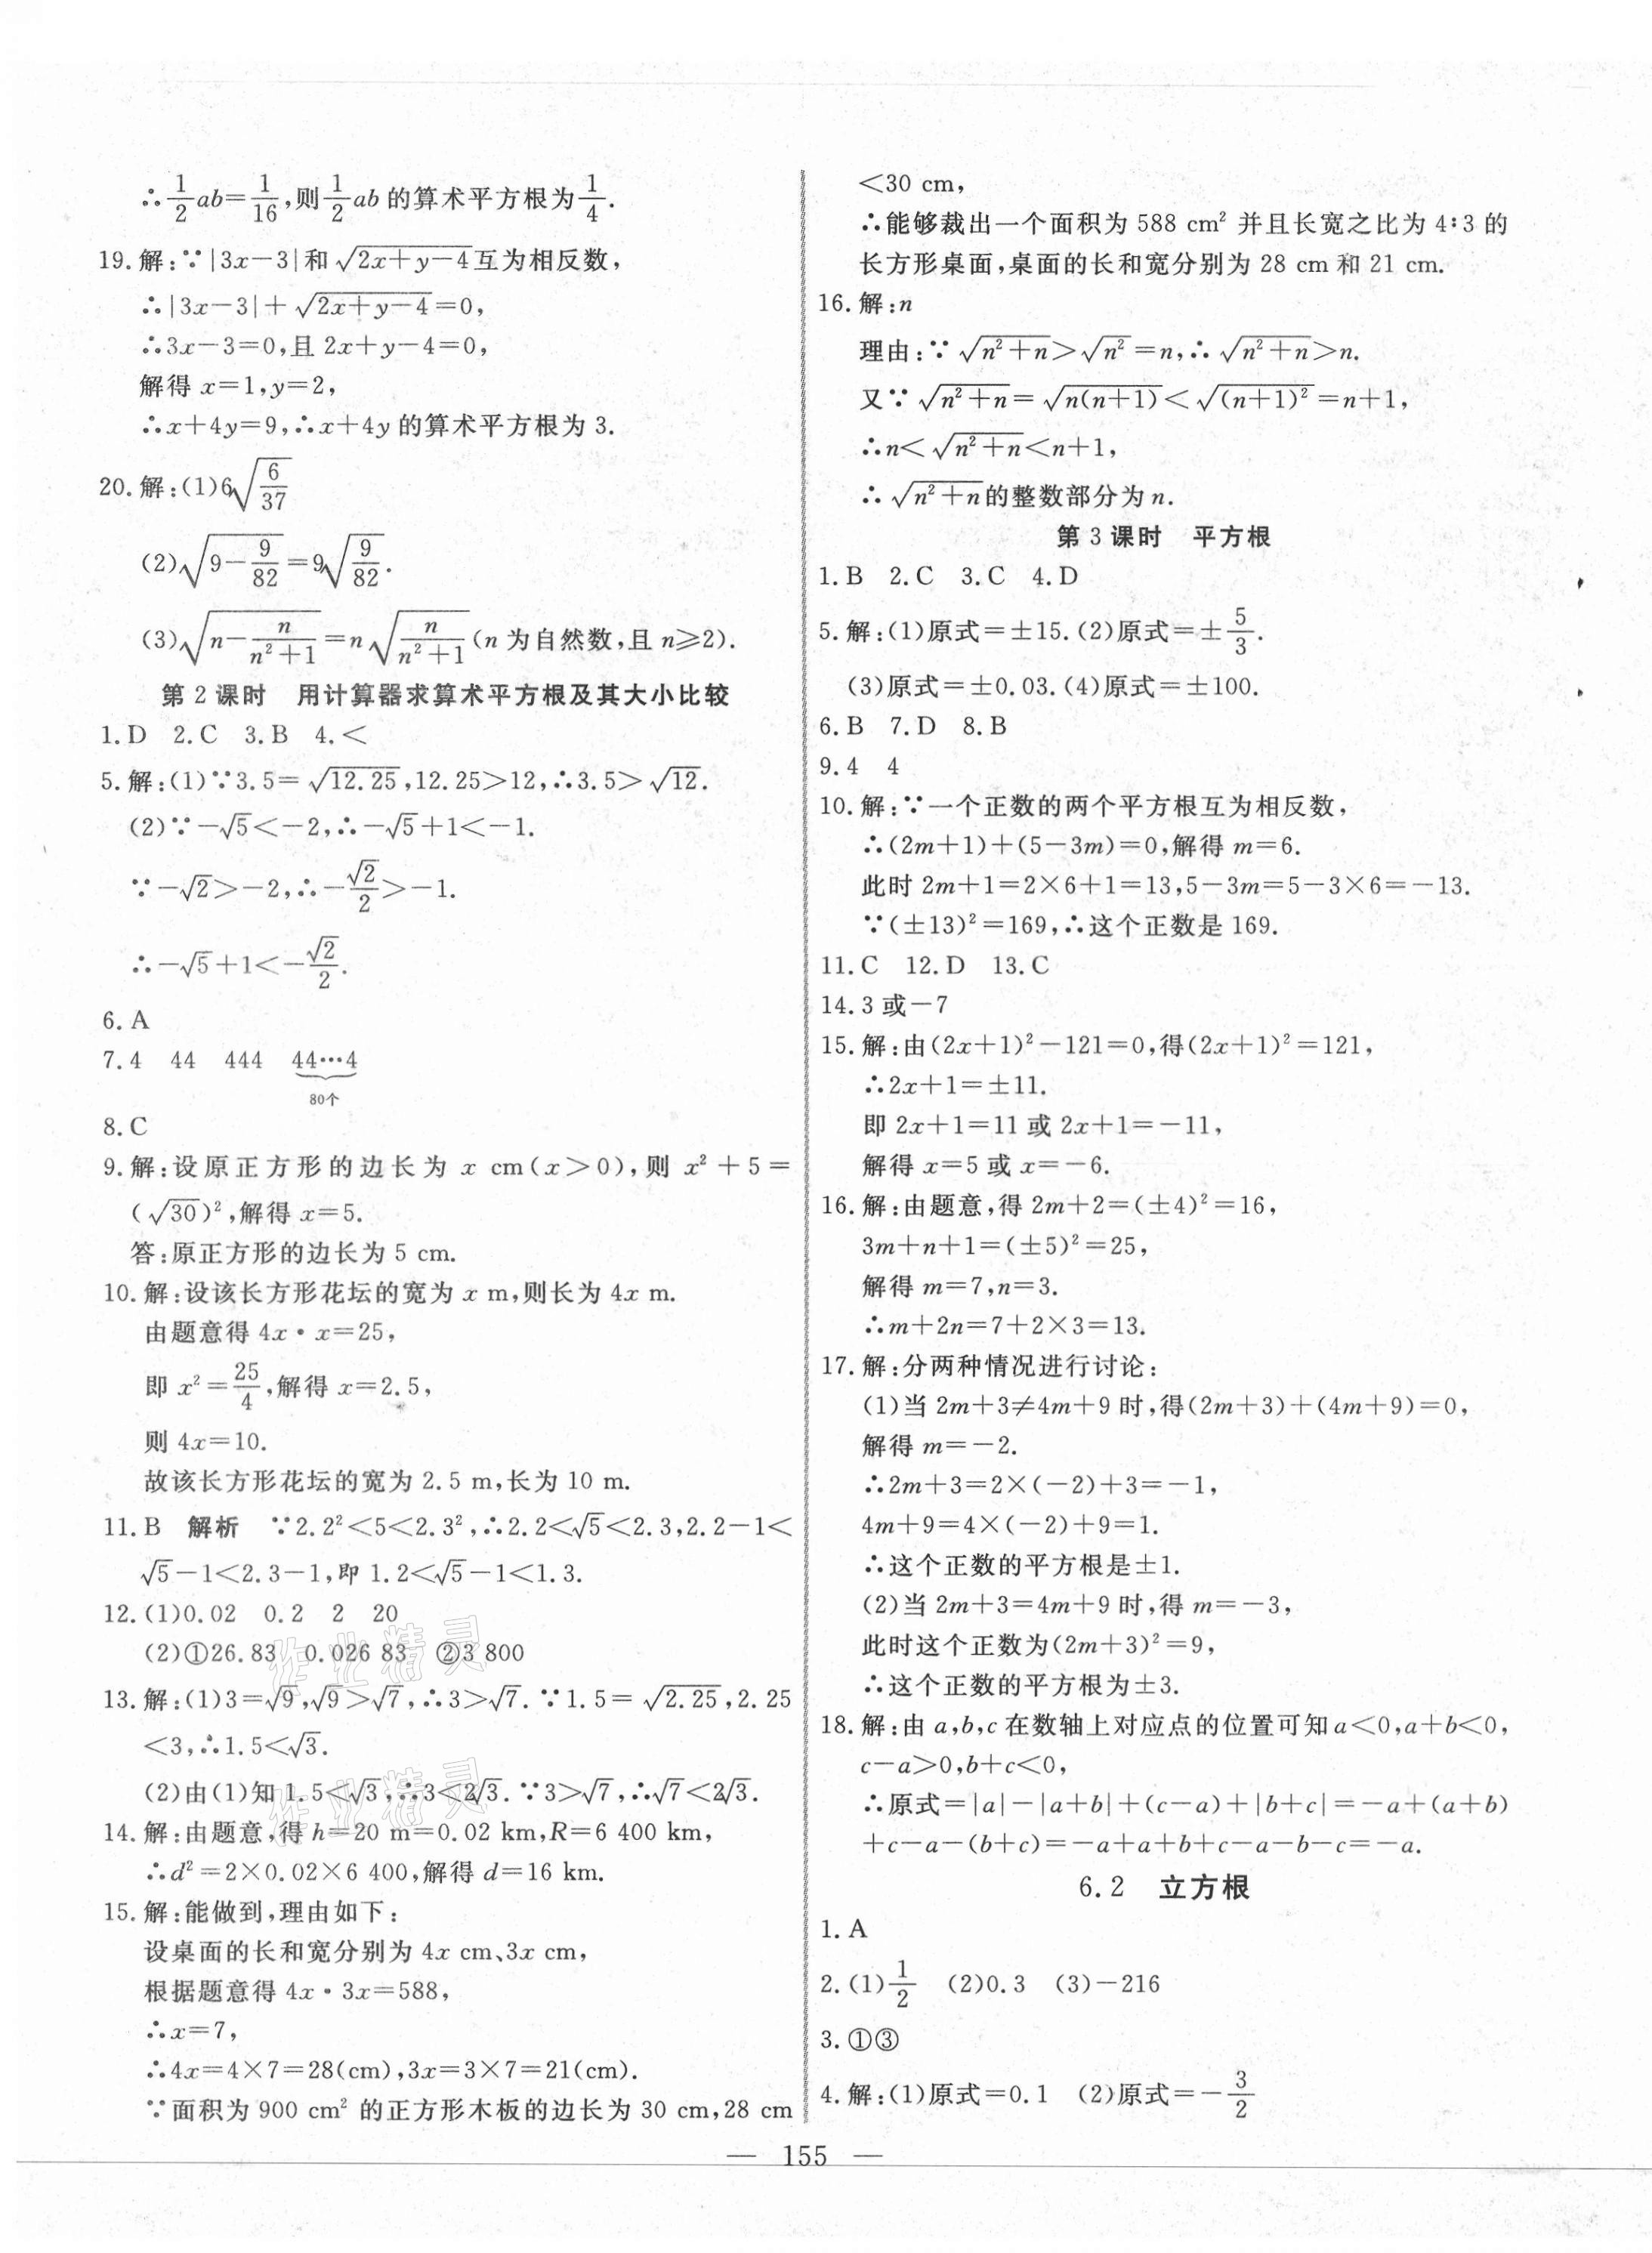 ∴1/2ab=1/16,则1/2ab的算术平方根为1/4.
19.解:∵|3x-3|和√(2x+y-4)互为相反数,
∴|3x-3|+√(2x+y-4)=0,
∴3x-3=0,且2x+y-4=0,
解得x=1,y=2,
∴x+4y=9,∴x+4y的算术平方根为3.
20.解:(1)6√(6/37)
(2)√(9-9/82)=9√(9/82).
(3)√(n-n/(n²+1))=n√(n/(n²+1))(n为自然数,且n≥2).
第2课时 用计算器求算术平方根及其大小比较
1.D 2.C 3.B 4.<
5.解:(1)∵3.5=√12.25,12.25>12,∴3.5>√12.
(2)∵-√5<-2,∴-√5+1<-1.
∵-√2>-2,∴-√2/2>-1.
∴-√5+1<-√2/2.
6.A
7.4 44 444 44…4
80个
8.C
9.解:设原正方形的边长为x cm(x>0),则x²+5=
(√30)²,解得x=5.
答:原正方形的边长为5 cm.
10.解:设该长方形花坛的宽为x m,则长为4x m.
由题意得4x·x=25,
即x²=25/4,解得x=2.5,
则4x=10.
故该长方形花坛的宽为2.5 m,长为10 m.
11.B 解析 ∵2.2²<5<2.3²,∴2.2<√5<2.3,2.2-1<
√5-1<2.3-1,即1.2<√5-1<1.3.
12.(1)0.02 0.2 2 20
(2)①26.83 0.026 83 ②3 800
13.解:(1)3=√9,√9>√7,∴3>√7.∵1.5=√2.25,2.25
<3,∴1.5<√3.
(2)由(1)知1.5<√3,∴3<2√3.∵3>√7,∴√7<2√3.
14.解:由题意,得h=20 m=0.02 km,R=6 400 km,
∴d²=2×0.02×6 400,解得d=16 km.
15.解:能做到,理由如下:
设桌面的长和宽分别为4x cm、3x cm,
根据题意得4x·3x=588,
∴x=7,
∴4x=4×7=28(cm),3x=3×7=21(cm).
∵面积为900 cm²的正方形木板的边长为30 cm,28 cm
<30 cm,
∴能够裁出一个面积为588 cm²并且长宽之比为4:3的
长方形桌面,桌面的长和宽分别为28 cm和21 cm.
16.解:n
理由:∵√(n²+n)>√n²=n,∴√(n²+n)>n.
又∵√(n²+n)=√(n(n+1))<√((n+1)²)=n+1,
∴n<√(n²+n)<n+1,
∴√(n²+n)的整数部分为n.
第3课时 平方根
1.B 2.C 3.C 4.D
5.解:(1)原式=±15.(2)原式=±5/3.
(3)原式=±0.03.(4)原式=±100.
6.B 7.D 8.B
9.4 4
10.解:∵一个正数的两个平方根互为相反数,
∴(2m+1)+(5-3m)=0,解得m=6.
此时2m+1=2×6+1=13,5-3m=5-3×6=-13.
∵(±13)²=169,∴这个正数是169.
11.C 12.D 13.C
14.3或-7
15.解:由(2x+1)²-121=0,得(2x+1)²=121,
∴2x+1=±11.
即2x+1=11或2x+1=-11,
解得x=5或x=-6.
16.解:由题意,得2m+2=(±4)²=16,
3m+n+1=(±5)²=25,
解得m=7,n=3.
∴m+2n=7+2×3=13.
17.解:分两种情况进行讨论:
(1)当2m+3≠4m+9时,得(2m+3)+(4m+9)=0,
解得m=-2.
∴2m+3=2×(-2)+3=-1,
4m+9=4×(-2)+9=1.
∴这个正数的平方根是±1.
(2)当2m+3=4m+9时,得m=-3,
此时这个正数为(2m+3)²=9,
∴这个正数的平方根为±3.
18.解:由a,b,c在数轴上对应点的位置可知a<0,a+b<0,
c-a>0,b+c<0,
∴原式=|a|-|a+b|+(c-a)+|b+c|=-a+(a+b)
+c-a-(b+c)=-a+a+b+c-a-b-c=-a.
6.2 立方根
1.A
2.(1)1/2 (2)0.3 (3)-216
3.①③
4.解:(1)原式=0.1 (2)原式=-3/2
— 155 —
作业精灵
作业精灵